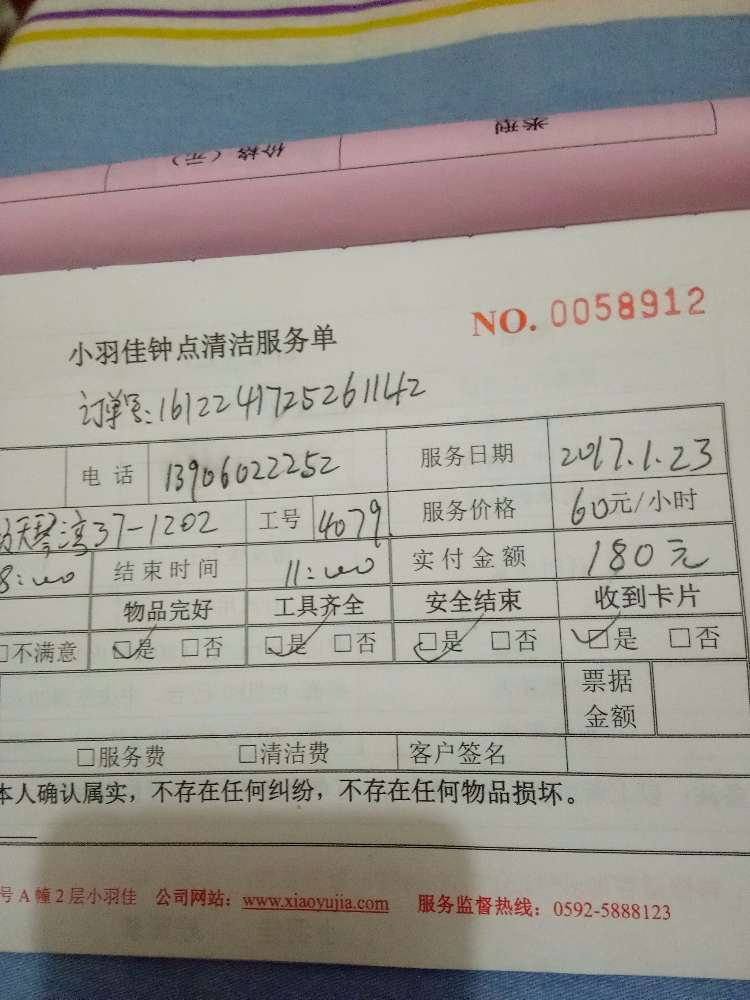 类型
价格（元）
NO. 0058912
小羽佳钟点清洁服务单
订单号:161224172526 1142
电话 13906022252 服务日期 2017.1.23
天琴湾37-1202 工号 4079 服务价格 60元/小时
8:00 结束时间 11:00 实付金额 180元
物品完好 工具齐全 安全结束 收到卡片
□不满意 ☑是 □否 ☑是 □否 ☑是 □否 ☑是 □否
票据
金额
□服务费 □清洁费 客户签名
本人确认属实，不存在任何纠纷，不存在任何物品损坏。
号A幢2层小羽佳 公司网站：www.xiaoyujia.com 服务监督热线：0592-5888123